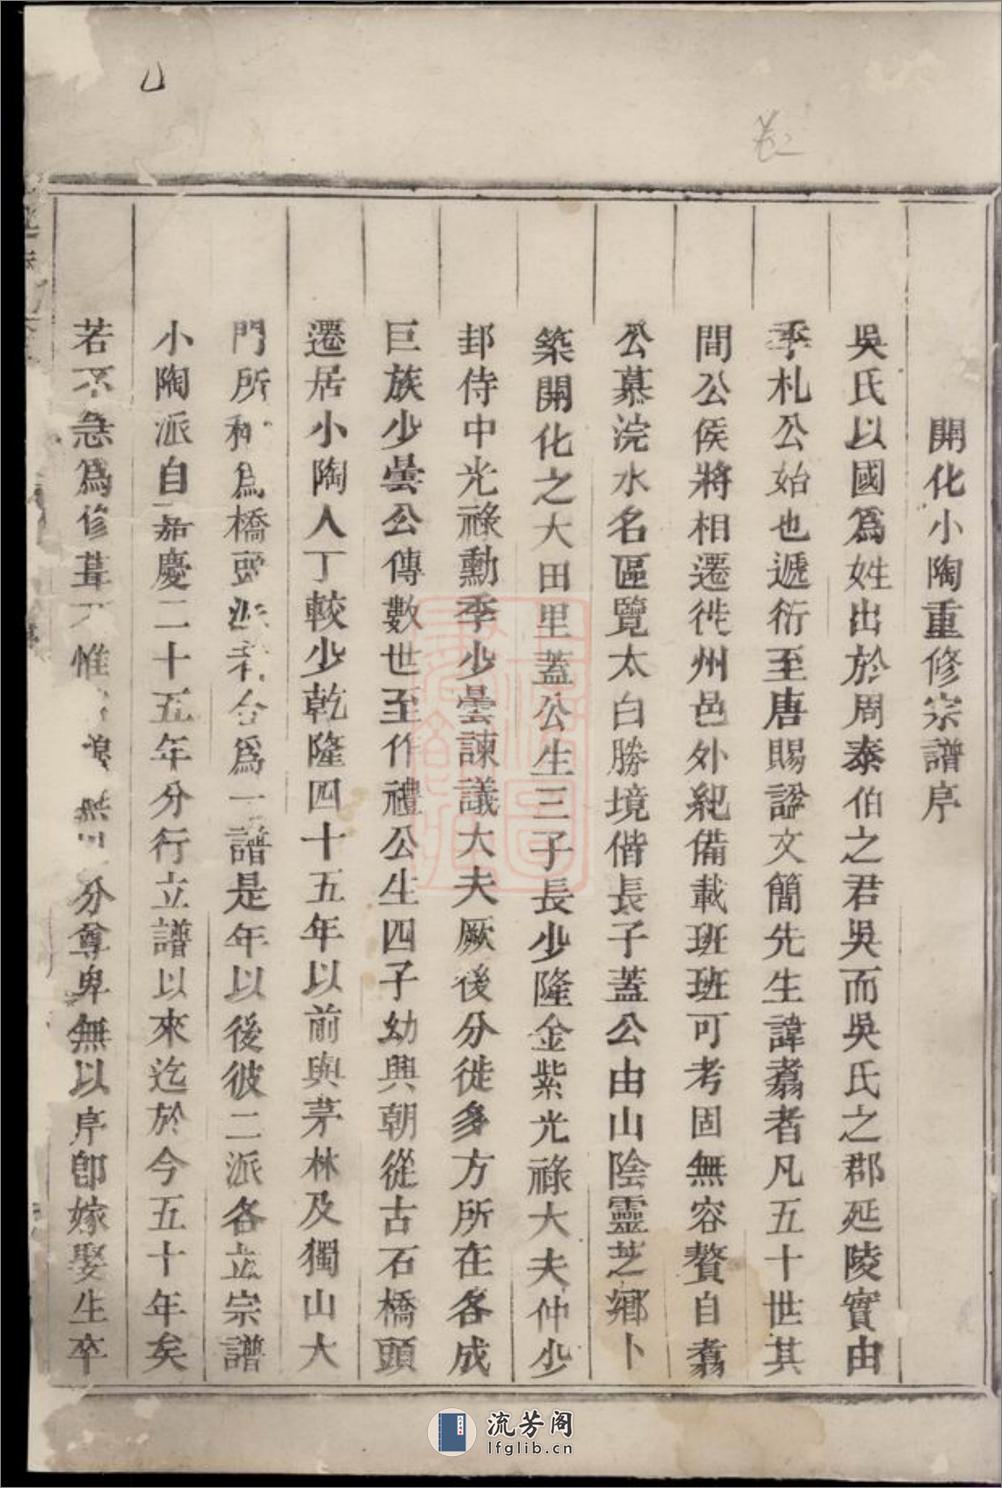 開化小陶重修宗譜序
吳氏以國爲姓出於周泰伯之君吳而吳氏之郡延陵實由
季札公始也遞衍至唐賜諡文簡先生諱翥者凡五十世其
間公侯將相遷徙州邑外紀備載班班可考固無容贅自翥
公慕浣水名區覽太白勝境偕長子蓋公由山陰靈芝鄉卜
築開化之大田里蓋公生三子長少隆金紫光祿大夫仲少
邽侍中光祿勳季少曇諫議大夫厥後分徙多方所在各成
巨族少曇公傳數世至作禮公生四子幼興朝從古石橋頭
遷居小陶人丁較少乾隆四十五年以前與茅林及獨山大
門所稱爲橋頭派者合爲一譜是年以後彼二派各立宗譜
小陶派自嘉慶二十五年分行立譜以來迄於今五十年矣
若不急爲修葺不惟 無分尊卑無以序卽嫁娶生卒
卷二
流芳阁
lfglib.cn